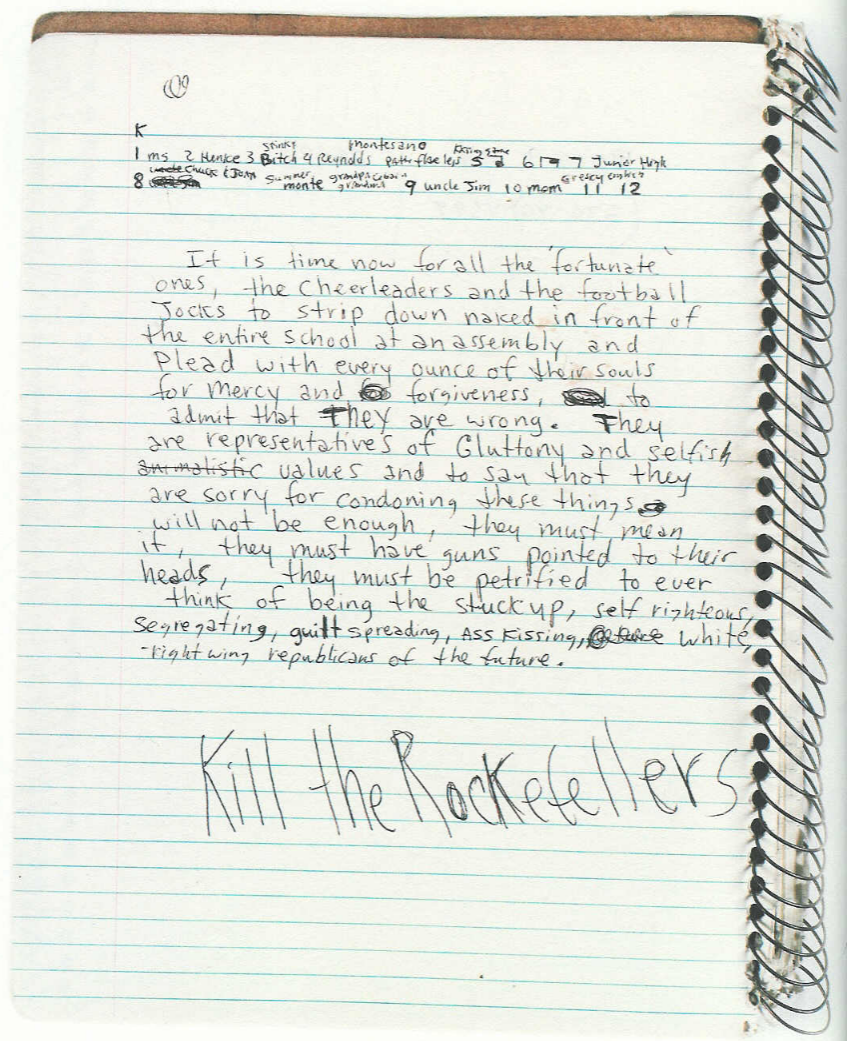 K
stinky montesano
1 ms 2 Henke 3 Bitch 4 Reynolds 5 6 7 Junior High
Chuck & Joan Summer grandpa cobain
8 monte grandma 9 uncle Jim 10 mom 11 12
It is time now for all the 'fortunate'
ones, the Cheerleaders and the football
Jocks to strip down naked in front of
the entire school at an assembly and
Plead with every ounce of their souls
for mercy and forgiveness, to
admit that They are wrong. They
are representatives of Gluttony and selfish
animalistic values and to say that they
are sorry for condoning these things
will not be enough, they must mean
it, they must have guns pointed to their
heads, they must be petrified to ever
think of being the stuck up, self righteous,
segregating, guilt spreading, Ass Kissing, white,
-right wing republicans of the future.
Kill the Rockefellers